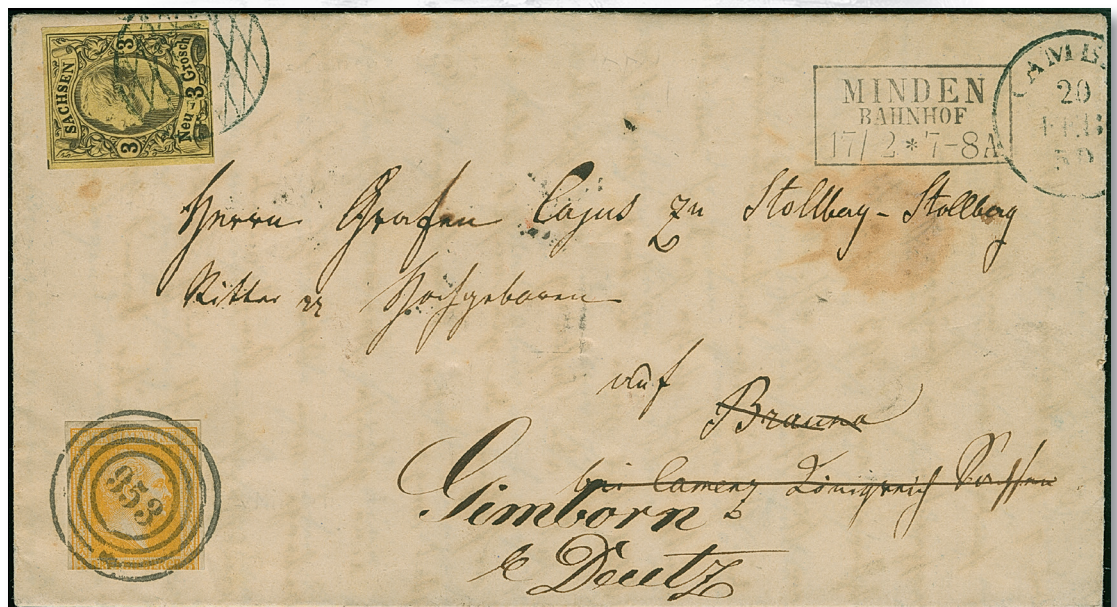 SACHSEN
3
3
Neu - 3 Grosch
MINDEN
BAHNHOF
17/2 * 7-8A
20
FEB
Herrn Grafen Cajus zu Stollberg - Stollberg
Ritter Hochgeboren
auf
Brauna
bei Camenz Königreich Sachsen
Gimborn
Deutz
953